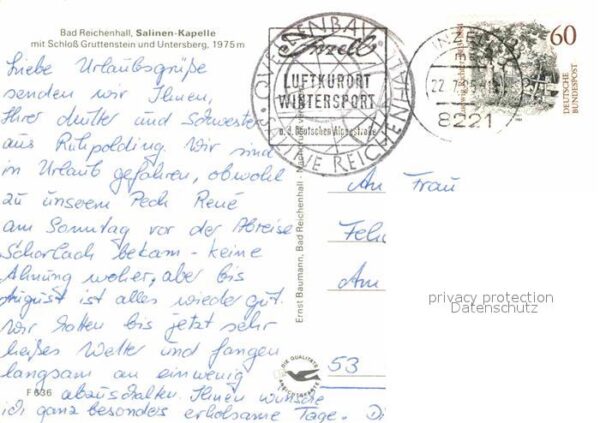 Bad Reichenhall, Salinen-Kapelle
mit Schloß Gruttenstein und Untersberg, 1975 m
Liebe Urlaubsgrüße
senden wir Ihnen,
Ihrer Mutter und Schwester
aus Ruhpolding. Wir sind
in Urlaub gefahren, obwohl
zu unserem Pech René
am Sonntag vor der Abreise
Scharlach bekam - keine
Ahnung woher, aber bis
August ist alles wieder gut.
Wir hatten bis jetzt sehr
heißes Wetter und fangen
langsam an ein wenig
F 636
abzuschalten. Ihnen wünsche
ich ganz besonders erholsame Tage. Di
Ernst Baumann, Bad Reichenhall
DIE QUALITÄTS
Inzell
LUFTKURORT
WINTERSPORT
a. d. Deutschen Alpenstraße
REICHENHALL
INZELL
22.7
8221
60
DEUTSCHE
BUNDESPOST
An Frau
Am
53
privacy protection
Datenschutz